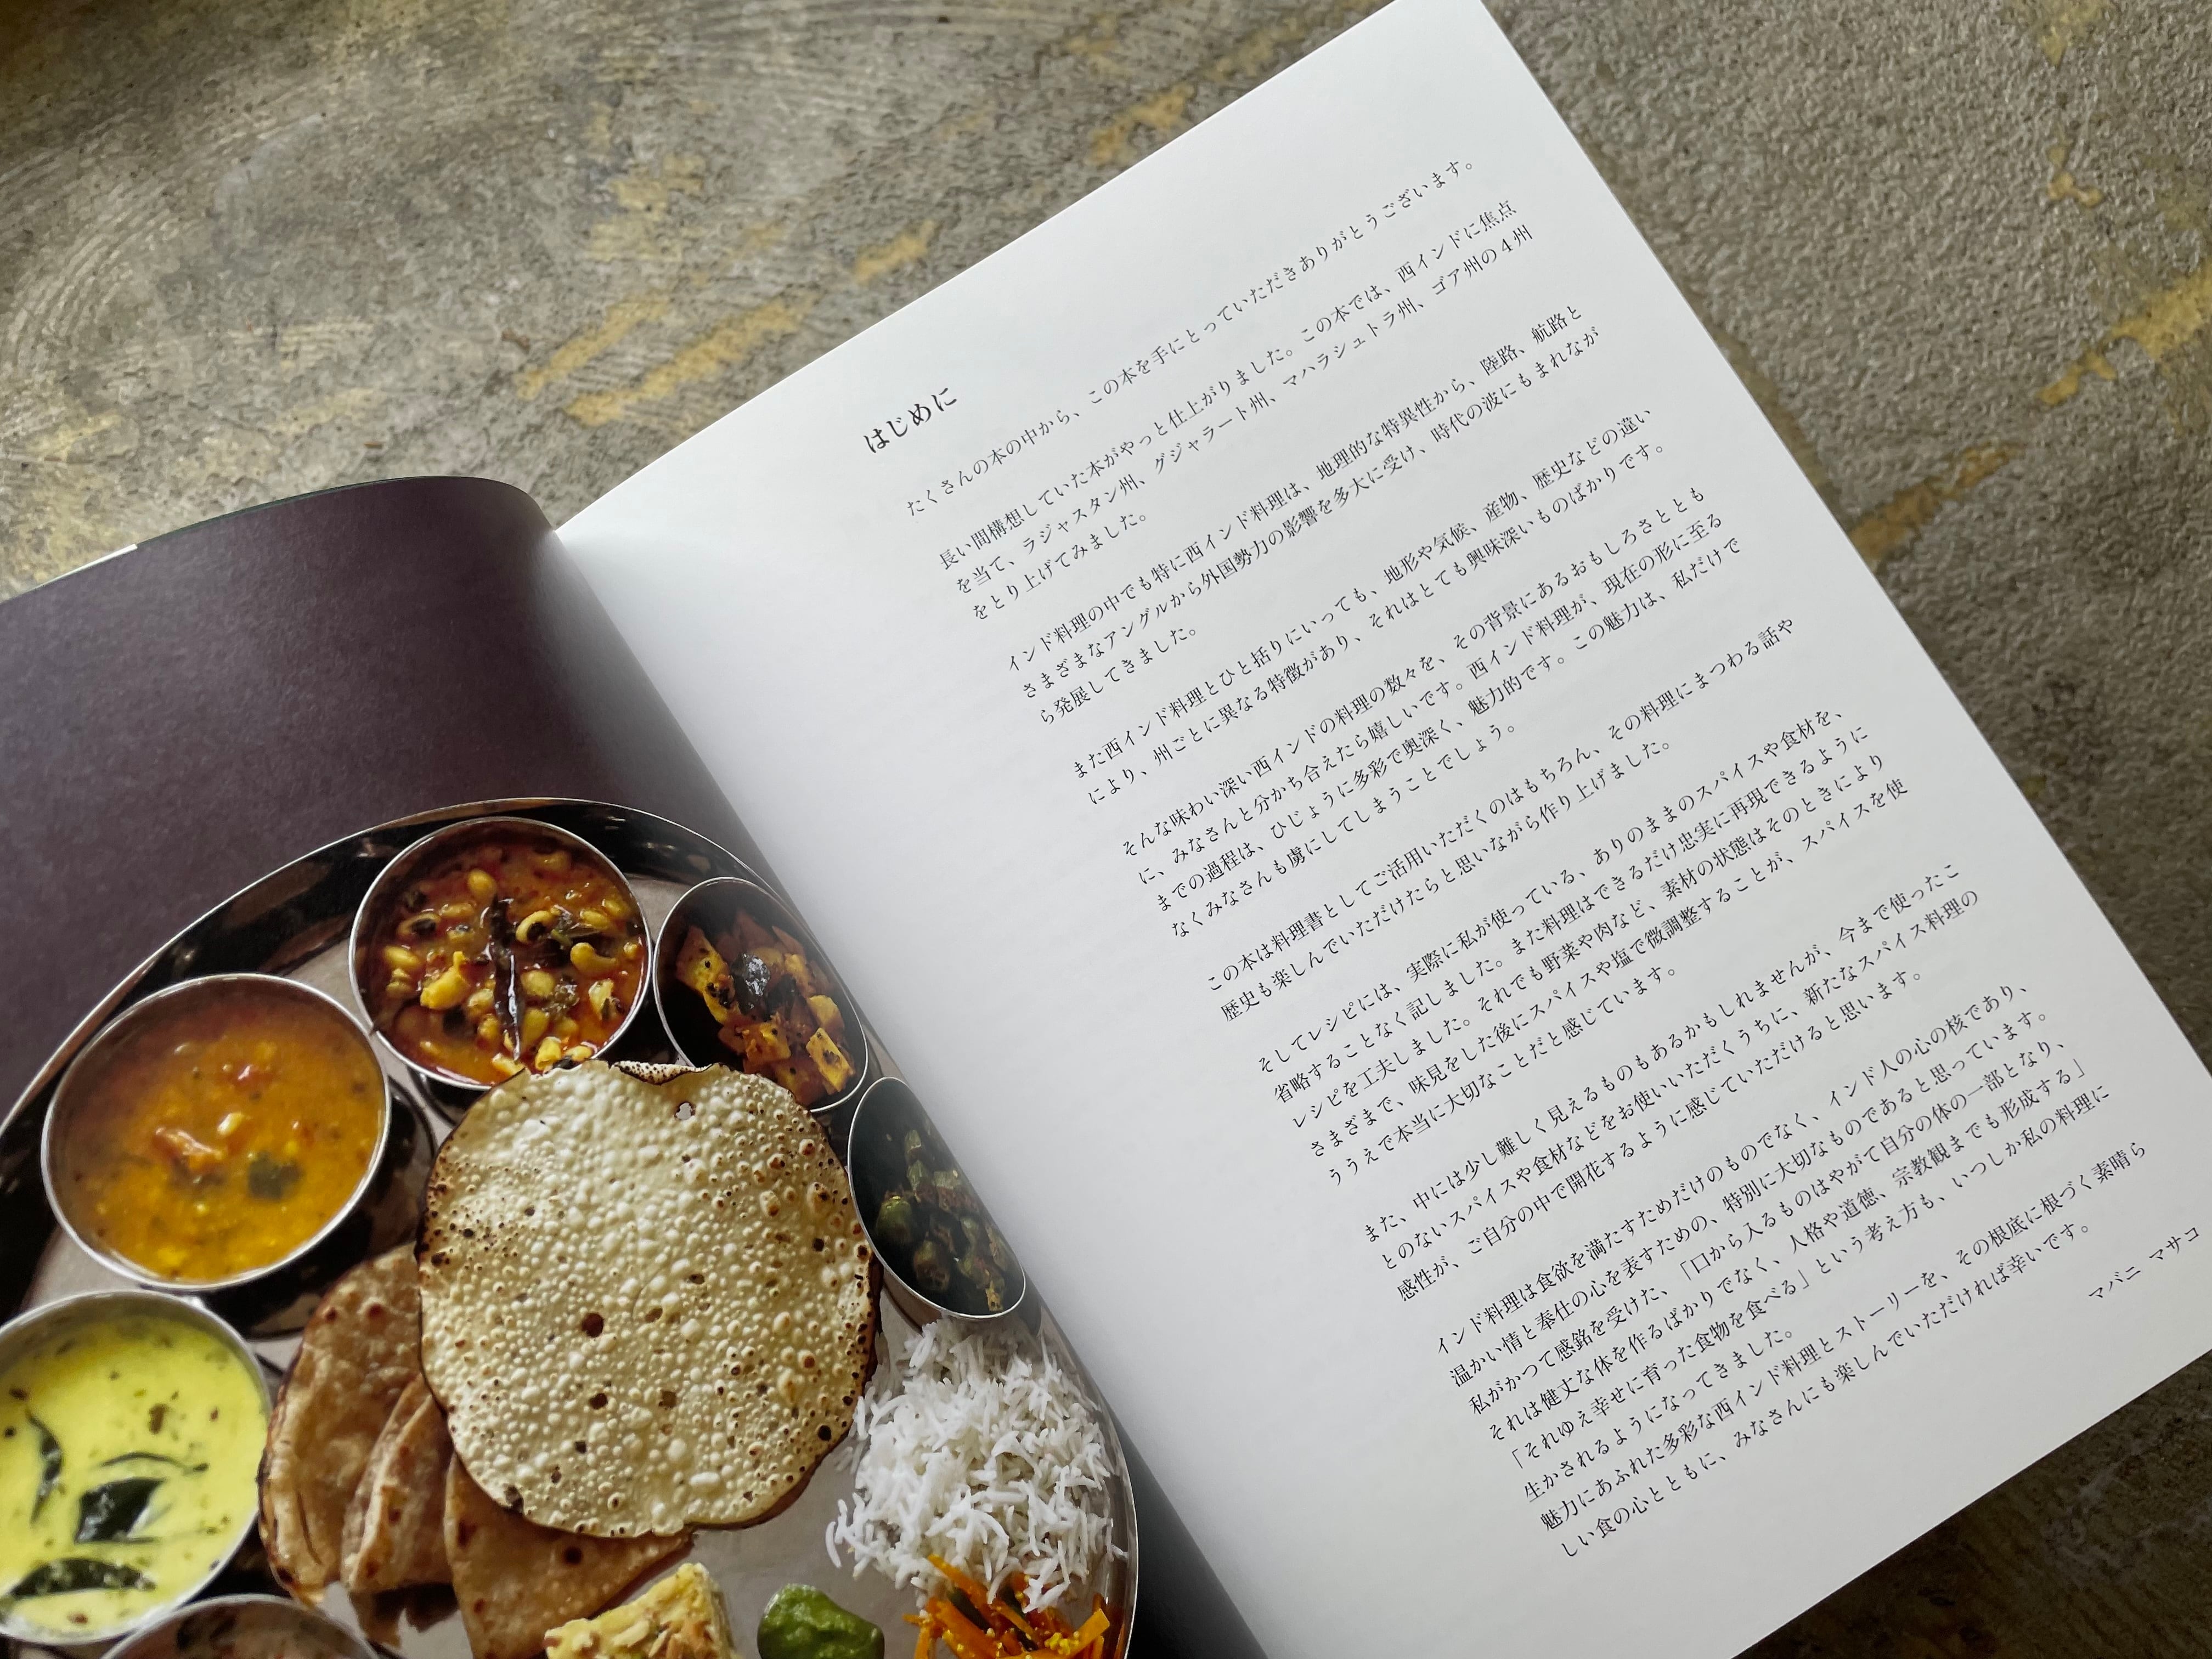 はじめに
たくさんの本の中から、この本を手にとっていただきありがとうございます。
長い間構想していた本がやっと仕上がりました。この本では、西インドに焦点
を当て、ラジャスタン州、グジャラート州、マハラシュトラ州、ゴア州の4州
をとり上げてみました。
インド料理の中でも特に西インド料理は、地理的な特異性から、陸路、航路と
さまざまなアングルから外国勢力の影響を多大に受け、時代の波にもまれなが
ら発展してきました。
また西インド料理とひと括りにいっても、地形や気候、産物、歴史などの違い
により、州ごとに異なる特徴があり、それはとても興味深いものばかりです。
そんな味わい深い西インドの料理の数々を、その背景にあるおもしろさととも
に、みなさんと分かち合えたら嬉しいです。西インド料理が、現在の形に至る
までの過程は、ひじょうに多彩で奥深く、魅力的です。この魅力は、私だけで
なくみなさんも虜にしてしまうことでしょう。
この本は料理書としてご活用いただくのはもちろん、その料理にまつわる話や
歴史も楽しんでいただけたらと思いながら作り上げました。
そしてレシピには、実際に私が使っている、ありのままのスパイスや食材を、
省略することなく記しました。また料理はできるだけ忠実に再現できるように
レシピを工夫しました。それでも野菜や肉など、素材の状態はそのときにより
さまざまで、味見をした後にスパイスや塩で微調整することが、スパイスを使
ううえで本当に大切なことだと感じています。
また、中には少し難しく見えるものもあるかもしれませんが、今まで使ったこ
とのないスパイスや食材などをお使いいただくうちに、新たなスパイス料理の
感性が、ご自分の中で開花するように感じていただけると思います。
インド料理は食欲を満たすためだけのものでなく、インド人の心の核であり、
温かい情と奉仕の心を表すための、特別に大切なものであると思っています。
私がかつて感銘を受けた、「口から入るものはやがて自分の体の一部となり、
それは健丈な体を作るばかりでなく、人格や道徳、宗教観までも形成する」
「それゆえ幸せに育った食物を食べる」という考え方も、いつしか私の料理に
生かされるようになってきました。
魅力にあふれた多彩な西インド料理とストーリーを、その根底に根づく素晴ら
しい食の心とともに、みなさんにも楽しんでいただければ幸いです。
マバニ マサコ